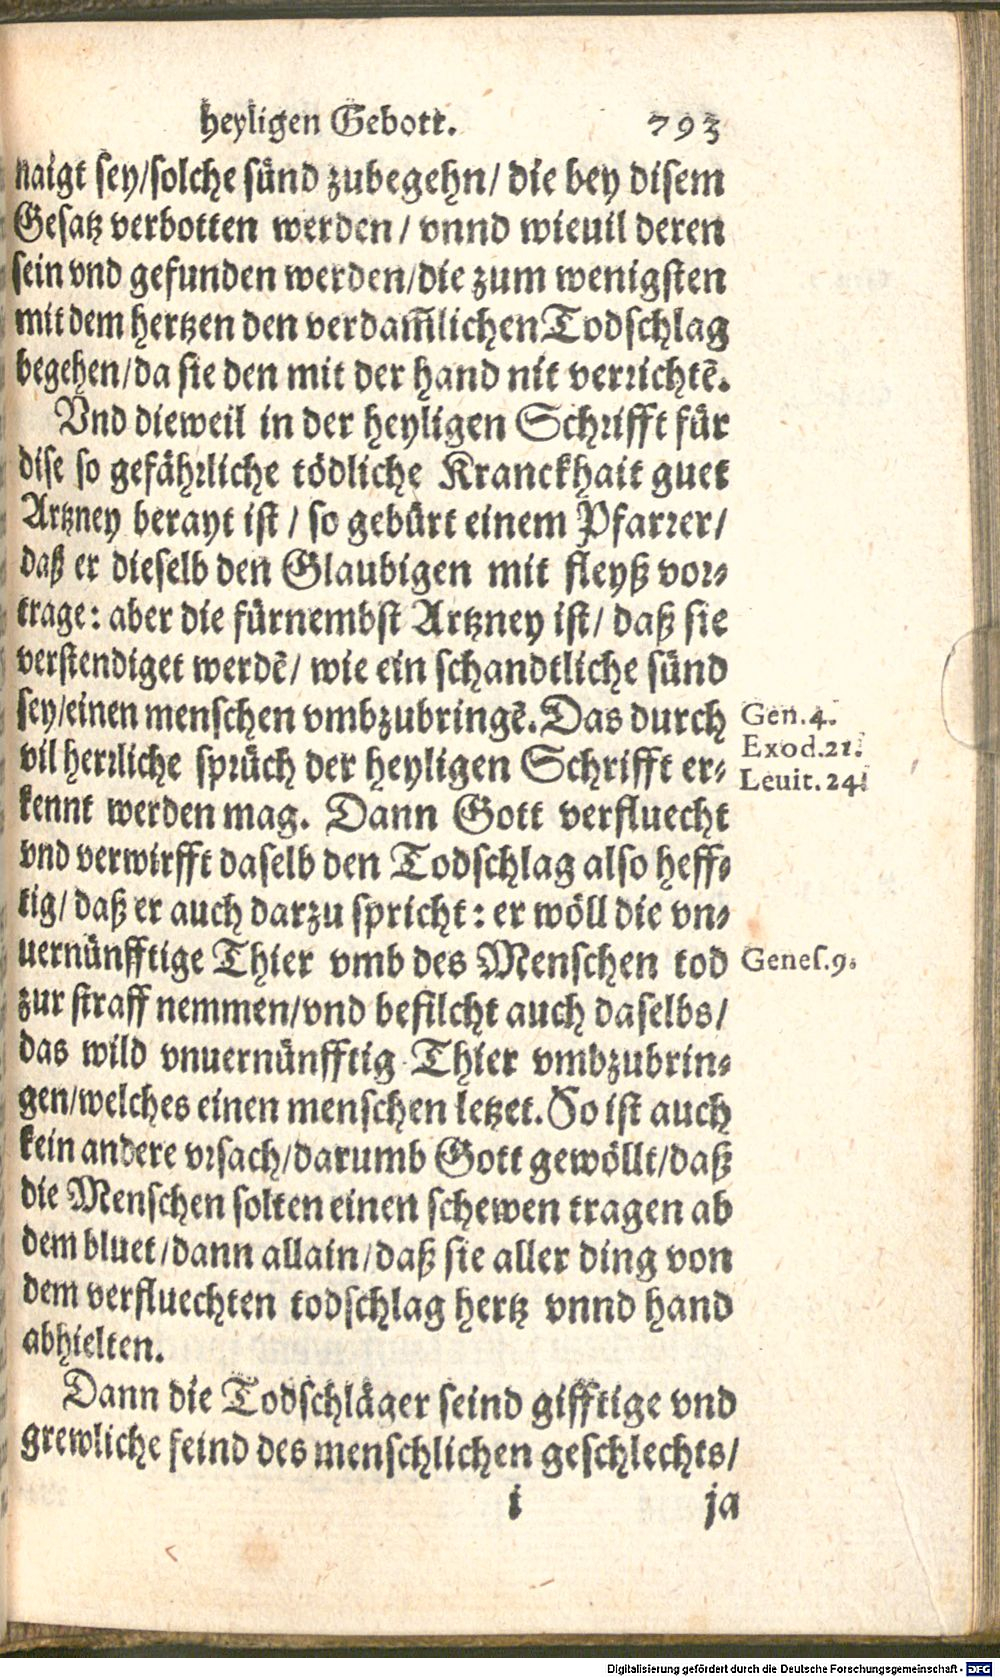 heyligen Gebott. 793
naigt sey/solche sünd zubegehn/ die bey disem
Gesatz verbotten werden / vnnd wieuil deren
sein vnd gefunden werden/die zum wenigsten
mit dem hertzen den verdam̃lichen Todschlag
begehen/da sie den mit der hand nit verrichtẽ.
Vnd dieweil in der heyligen Schrifft für
dise so gefährliche tödliche Kranckhait guet
Artzney berayt ist / so gebürt einem Pfarrer/
daß er dieselb den Glaubigen mit fleyß vor-
trage: aber die fürnembst Artzney ist/ daß sie
verstendiget werdẽ/ wie ein schandtliche sünd
sey/einen menschen vmbzubringẽ. Das durch
Gen.4.
vil herrliche sprüch der heyligen Schrifft er-
Exod.21.
Leuit.24.
kennt werden mag. Dann Gott verfluecht
vnd verwirfft daselb den Todschlag also heff-
tig/ daß er auch darzu spricht: er wöll die vn-
uernünfftige Thier vmb des Menschen tod
Genes.9.
zur straff nemmen/vnd befilcht auch daselbs/
das wild vnuernünfftig Thier vmbzubrin-
gen/welches einen menschen letzet. So ist auch
kein andere vrsach/darumb Gott gewöllt/daß
die Menschen solten einen schewen tragen ab
dem bluet/dann allain/daß sie aller ding von
dem verfluechten todschlag hertz vnnd hand
abhielten.
Dann die Todschläger seind gifftige vnd
grewliche feind des menschlichen geschlechts/
i ja
Digitalisierung gefördert durch die Deutsche Forschungsgemeinschaft - DFG